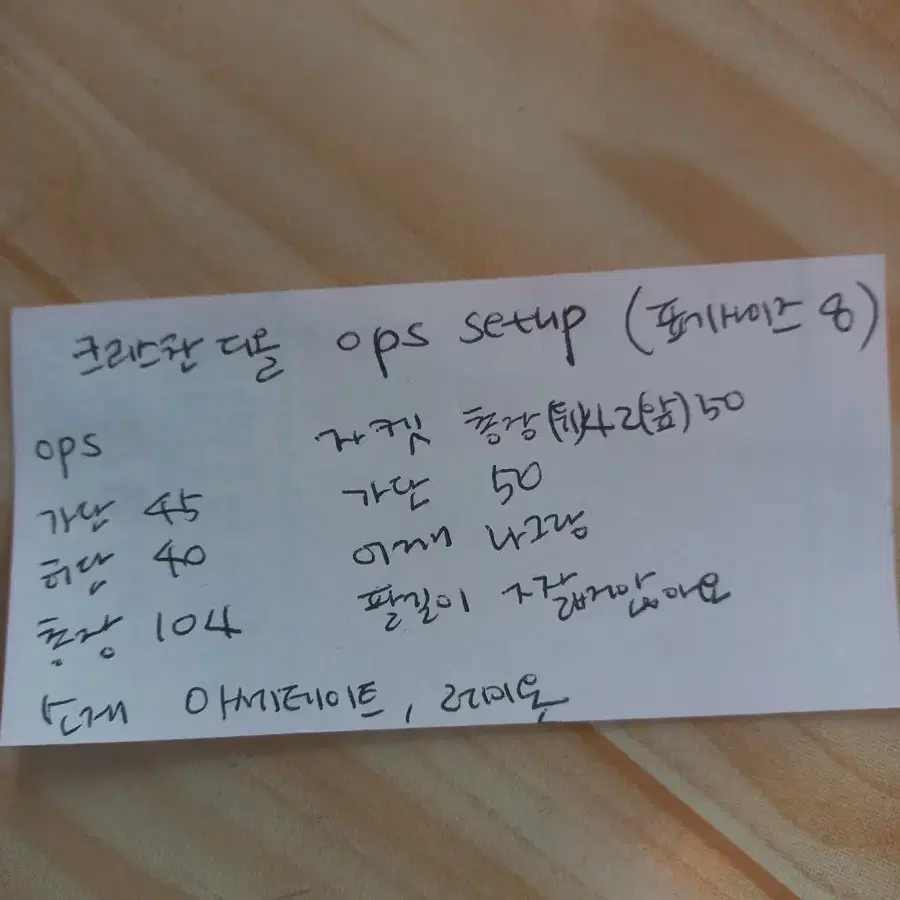 크리스찬 디올 ops setup (표기사이즈 8)
ops 자켓 총장(뒤)42(앞)50
가단 45 가단 50
허단 40 어깨 나그랑
총장 104 팔길이
소재 아세테이트, 레이온